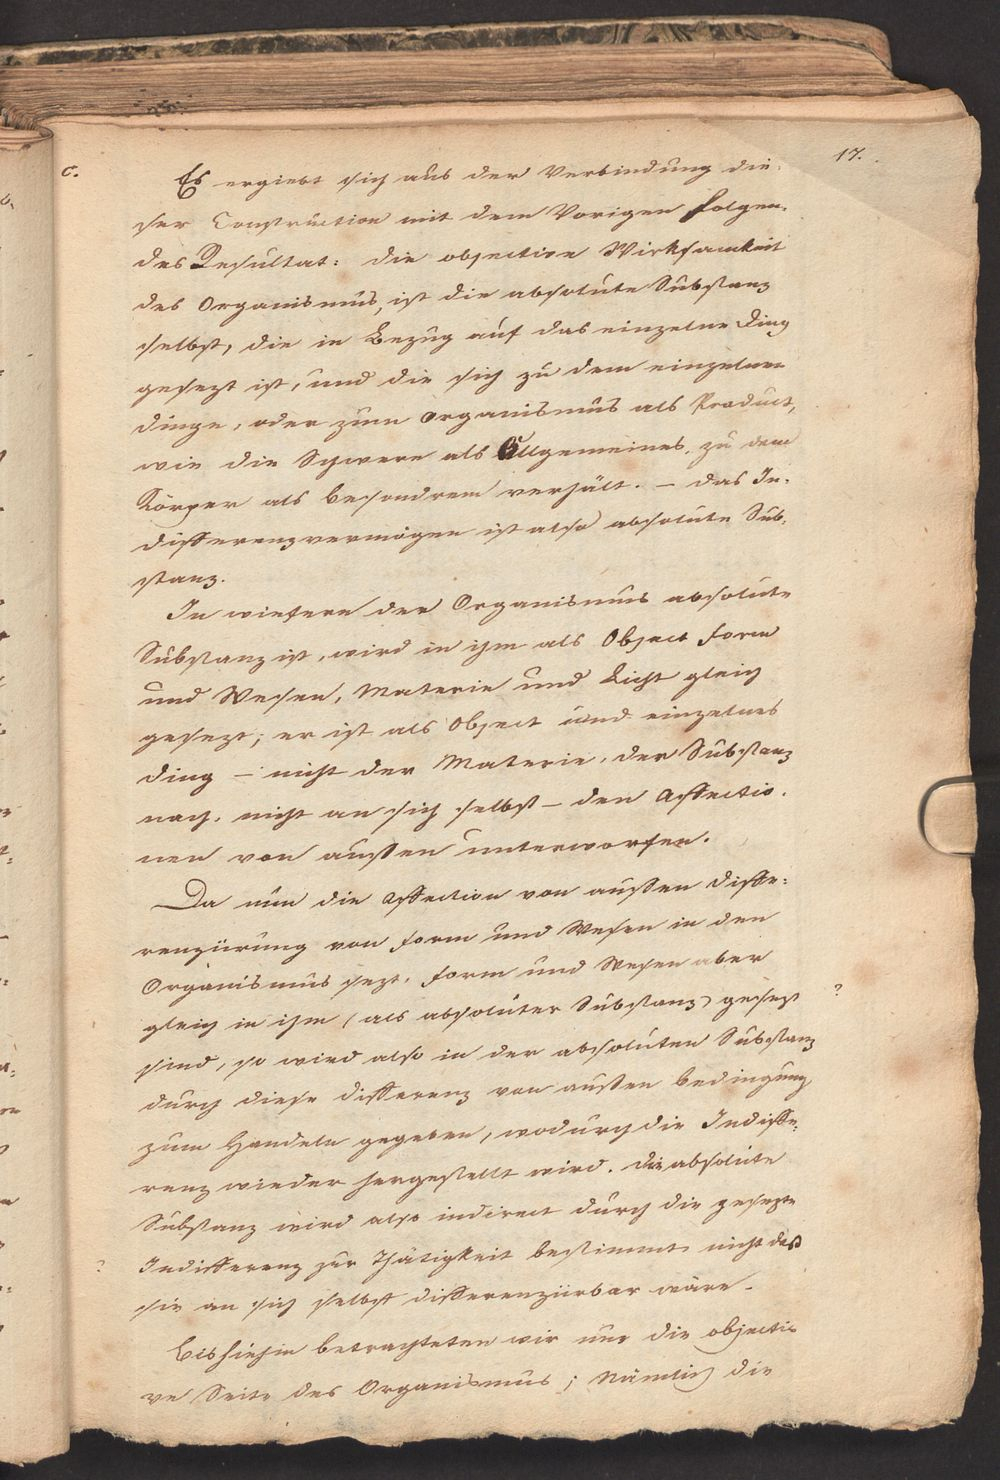 17.
c.
Es ergiebt sich aus der Verbindung die-
ser Construction mit dem Vorigen folgen-
des Resultat: die objective Wirksamkeit
des Organismus, ist die absolute Substanz
selbst, die in Bezug auf das einzelne Ding
gesezt ist, und die sich zu dem einzelnen
Dinge, oder zum Organismus als Product,
wie die Schwere als Allgemeines, zu dem
Körper als besondrem verhält. – Das In-
differenzvermögen ist also absolute Sub-
stanz.
In wiefern der Organismus absolute
Substanz ist, wird in ihm als Object Form
und Wesen, Materie und Licht gleich
gesezt; er ist als Object und einzelnes
Ding – nicht der Materie, der Substanz
nach, nicht an sich selbst – den Affectio-
nen von außen unterworfen.
Da nun die Affection von außen Diffe-
renziirung von Form und Wesen in den
Organismus sezt, Form und Wesen aber
gleich in ihm (als absoluter Substanz) gesezt ?
sind, so wird also in der absoluten Substanz
durch diese Differenz von außen Bedingung
zum Handeln gegeben, wodurch die Indiffe-
renz wieder hergestellt wird. Die absolute
Substanz wird also indirect durch die gesezte
? Indifferenz zur Thätigkeit bestimmt nicht daß
sie an sich selbst differenziirbar wäre.
Bishiehin betrachteten wir nur die objecti-
ve Seite des Organismus; Nämlich die